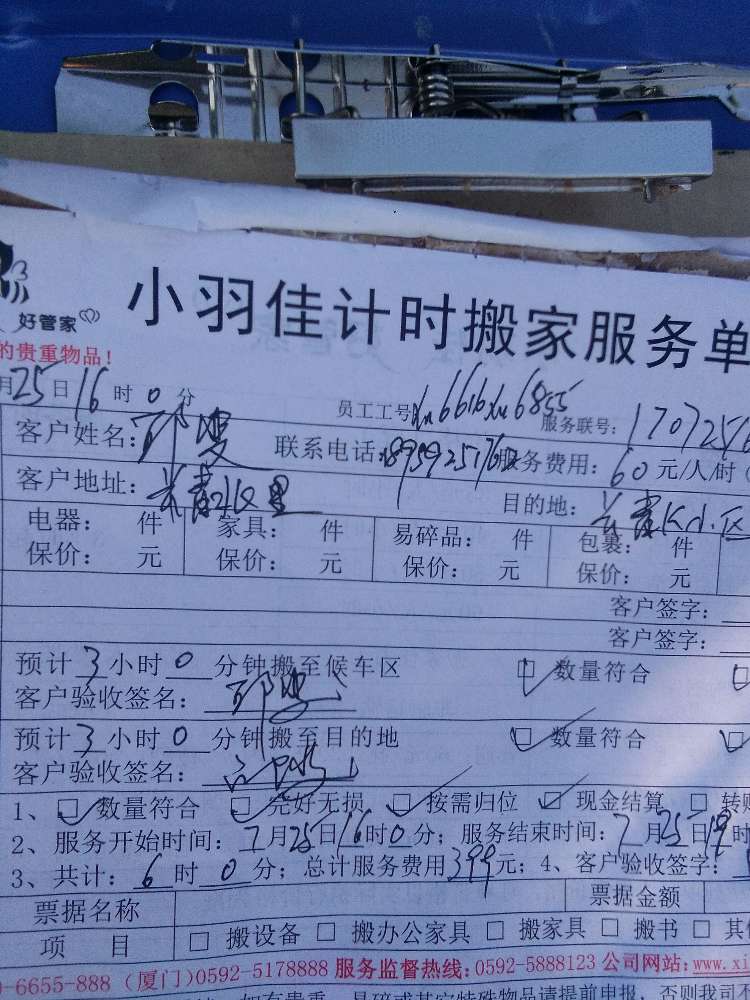 小羽佳计时搬家服务单
好管家
的贵重物品!
月25日16时0分 员工工号: 6616 6855 服务联号: 170725
客户姓名: 联系电话: 服务费用: 60元/人/时
客户地址: 长青北里 目的地: 长青 小区
电器: 件 家具: 件 易碎品: 件 包裹: 件
保价: 元 保价: 元 保价: 元 保价: 元
客户签字:
客户签字:
预计3小时0分钟搬至候车区 数量符合
客户验收签名:
预计3小时0分钟搬至目的地 数量符合
客户验收签名:
1、 数量符合 完好无损 按需归位 现金结算 转账
2、服务开始时间: 7月25日16时0分; 服务结束时间: 7月25日19时
3、共计: 6时0分; 总计服务费用399元; 4、客户验收签字:
票据名称 票据金额
项 目 搬设备 搬办公家具 搬家具 搬书 其
0-6655-888 (厦门)0592-5178888 服务监督热线:0592-5888123 公司网站:www.xi
如有贵重、易碎或其它特殊物品请提前申报,否则我司不